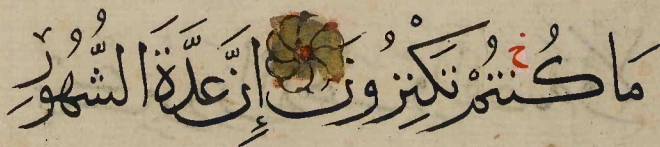 مَا كُنتُمْ تَكْنِزُونَ إِنَّ عِدَّةَ الشُّهُورِ